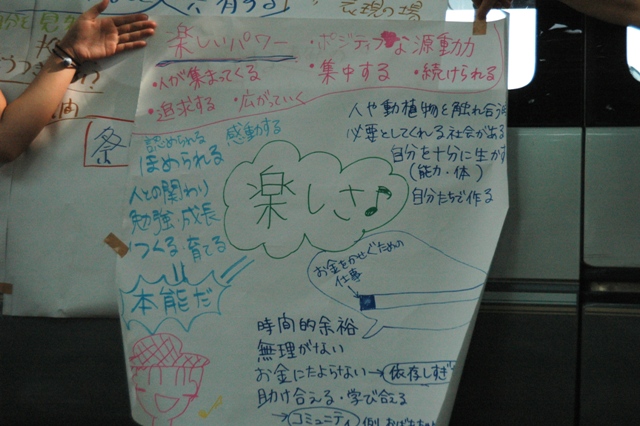 表現の場
楽しいパワー ポジティブな源動力
・人が集まってくる ・集中する ・続けられる
・追求する ・広がっていく
人や動植物と触れ合う
認められる 感動する
必要としてくれる社会がある
ほめられる
自分を十分に生かす
(能力・体)
人との関わり
自分たちで作る
勉強・成長
つくる・育てる
楽しさ♪
お金をかせぐための
仕事
本能だ
時間的余裕
無理がない
お金にたよらない→依存しすぎ
助け合える・学び合える
→コミュニティ